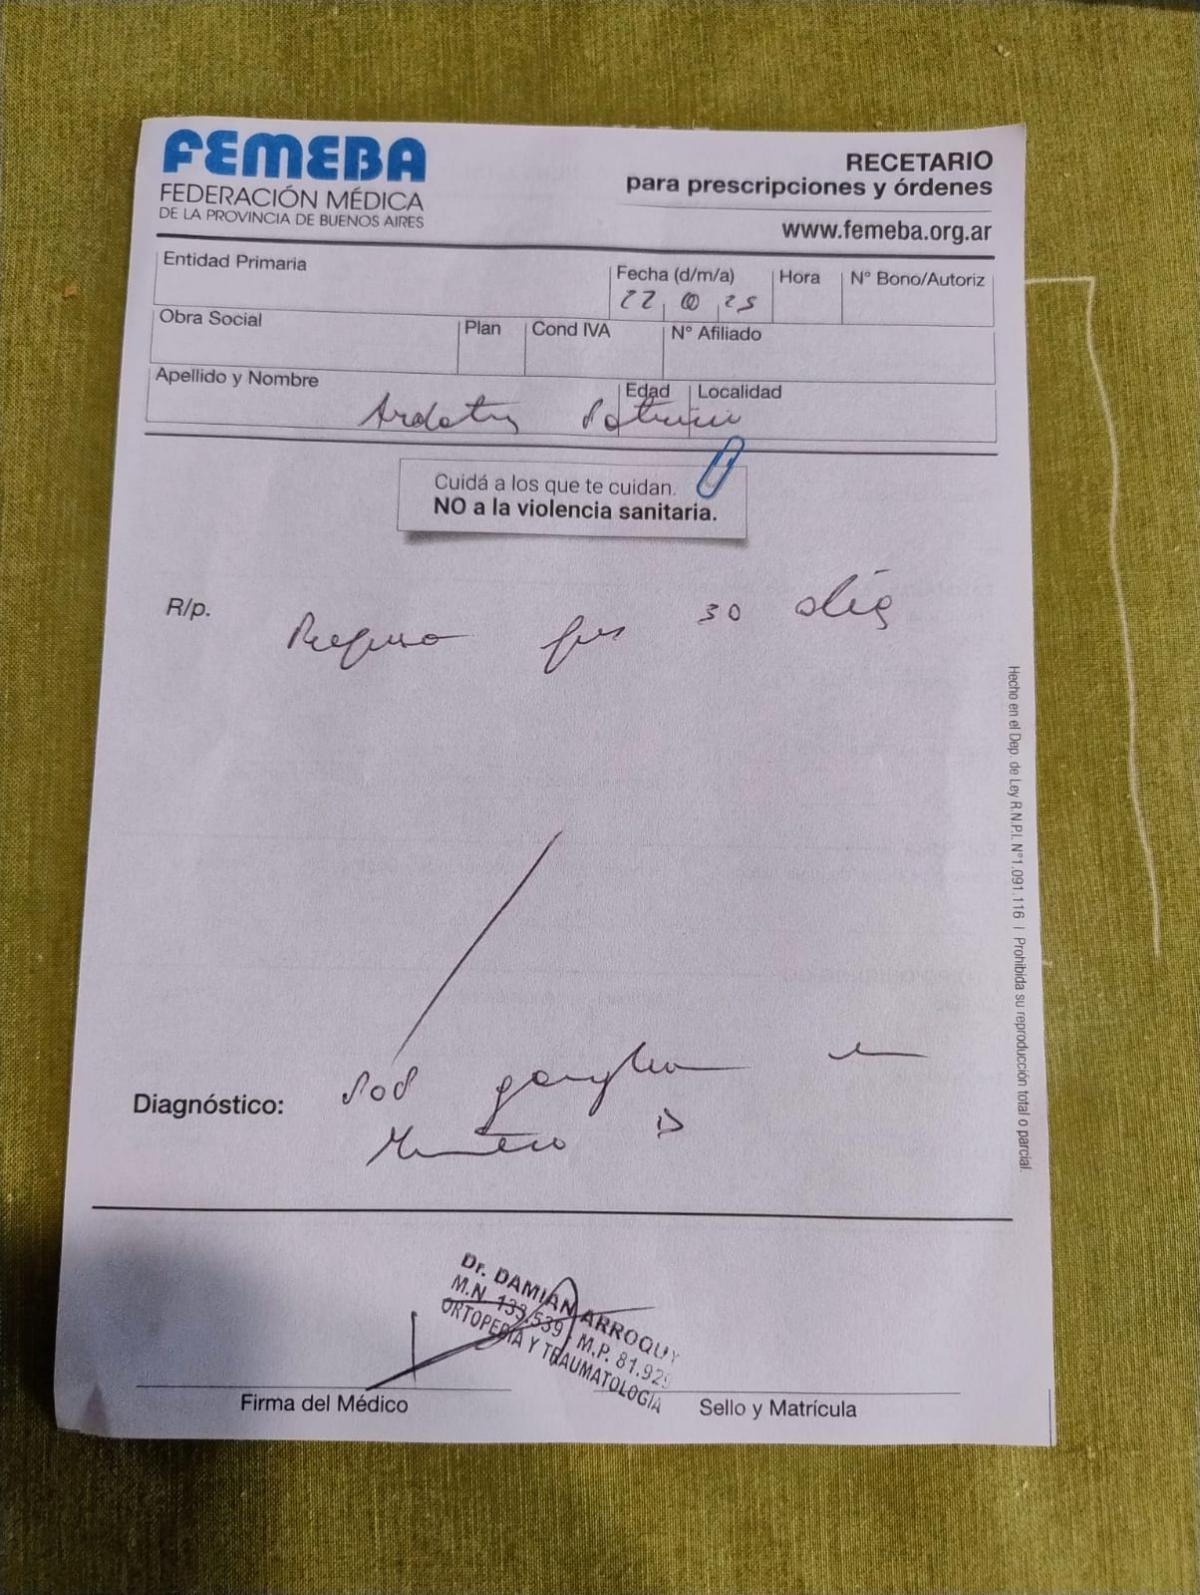 FEMEBA
FEDERACIÓN MÉDICA
DE LA PROVINCIA DE BUENOS AIRES
RECETARIO
para prescripciones y órdenes
www.femeba.org.ar
Entidad Primaria
Fecha (d/m/a)
22 10 25
Hora
N° Bono/Autoriz
Obra Social
Plan
Cond IVA
N° Afiliado
Apellido y Nombre
Edad
Localidad
Cuidá a los que te cuidan.
NO a la violencia sanitaria.
R/p.
Reposo por 30 días
Diagnóstico:
ganglion en
Muñeca D
Dr. DAMIAN ARROQUY
M.N. 133.539 / M.P. 81.929
ORTOPEDIA Y TRAUMATOLOGIA
Firma del Médico
Sello y Matrícula
Hecho en el Dep. de Ley R.N.P.I. N°1.091.116 | Prohibida su reproducción total o parcial.